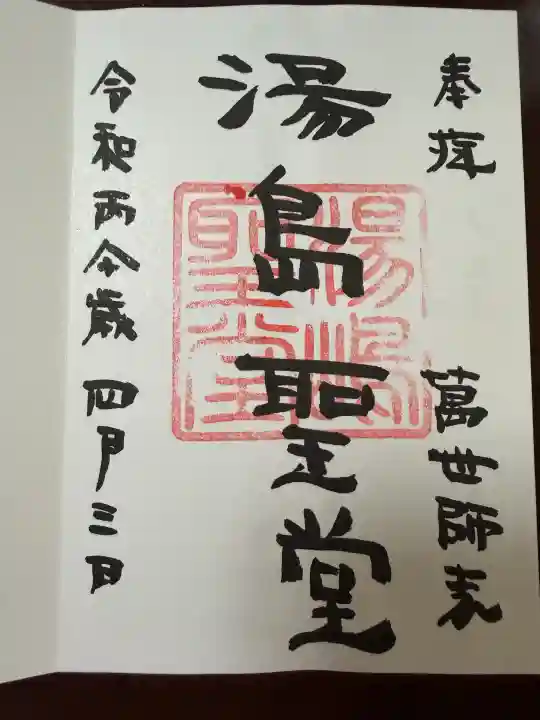 奉拝 萬世師表
湯島聖堂
湯嶋
聖堂
令和丙午歳 四月三日